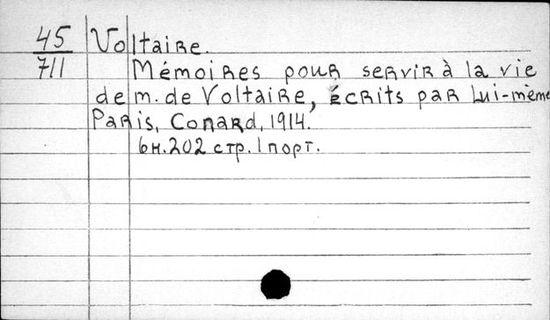 45 Voltaire.
711 Mémoires pour servir à la vie
de m. de Voltaire, écrits par lui-même
Paris, Conard, 1914.
6н.202 стр. 1 порт.